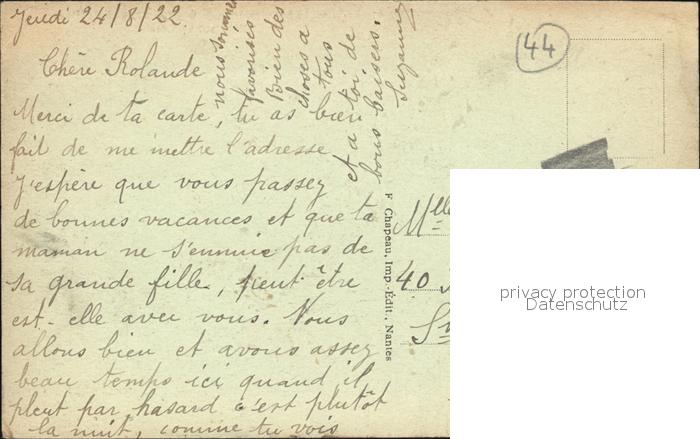 Jeudi 24/8/22
Chère Rolande
Merci de ta carte, tu as bien
fait de me mettre l'adresse
J'espère que vous passez
de bonnes vacances et que ta
maman ne s'ennuie pas de
sa grande fille, peut être
est-elle avec vous. Nous
allons bien et avons assez
beau temps ici quand il
pleut par hasard c'est plutôt
la nuit, comme tu vois
nous sommes
favorisés
Bien des
choses a
tous
et a toi de
bons baisers.
Suzanne
44
F Chapeau, Imp.-Édit., Nantes
Mlle
40
privacy protection
Datenschutz